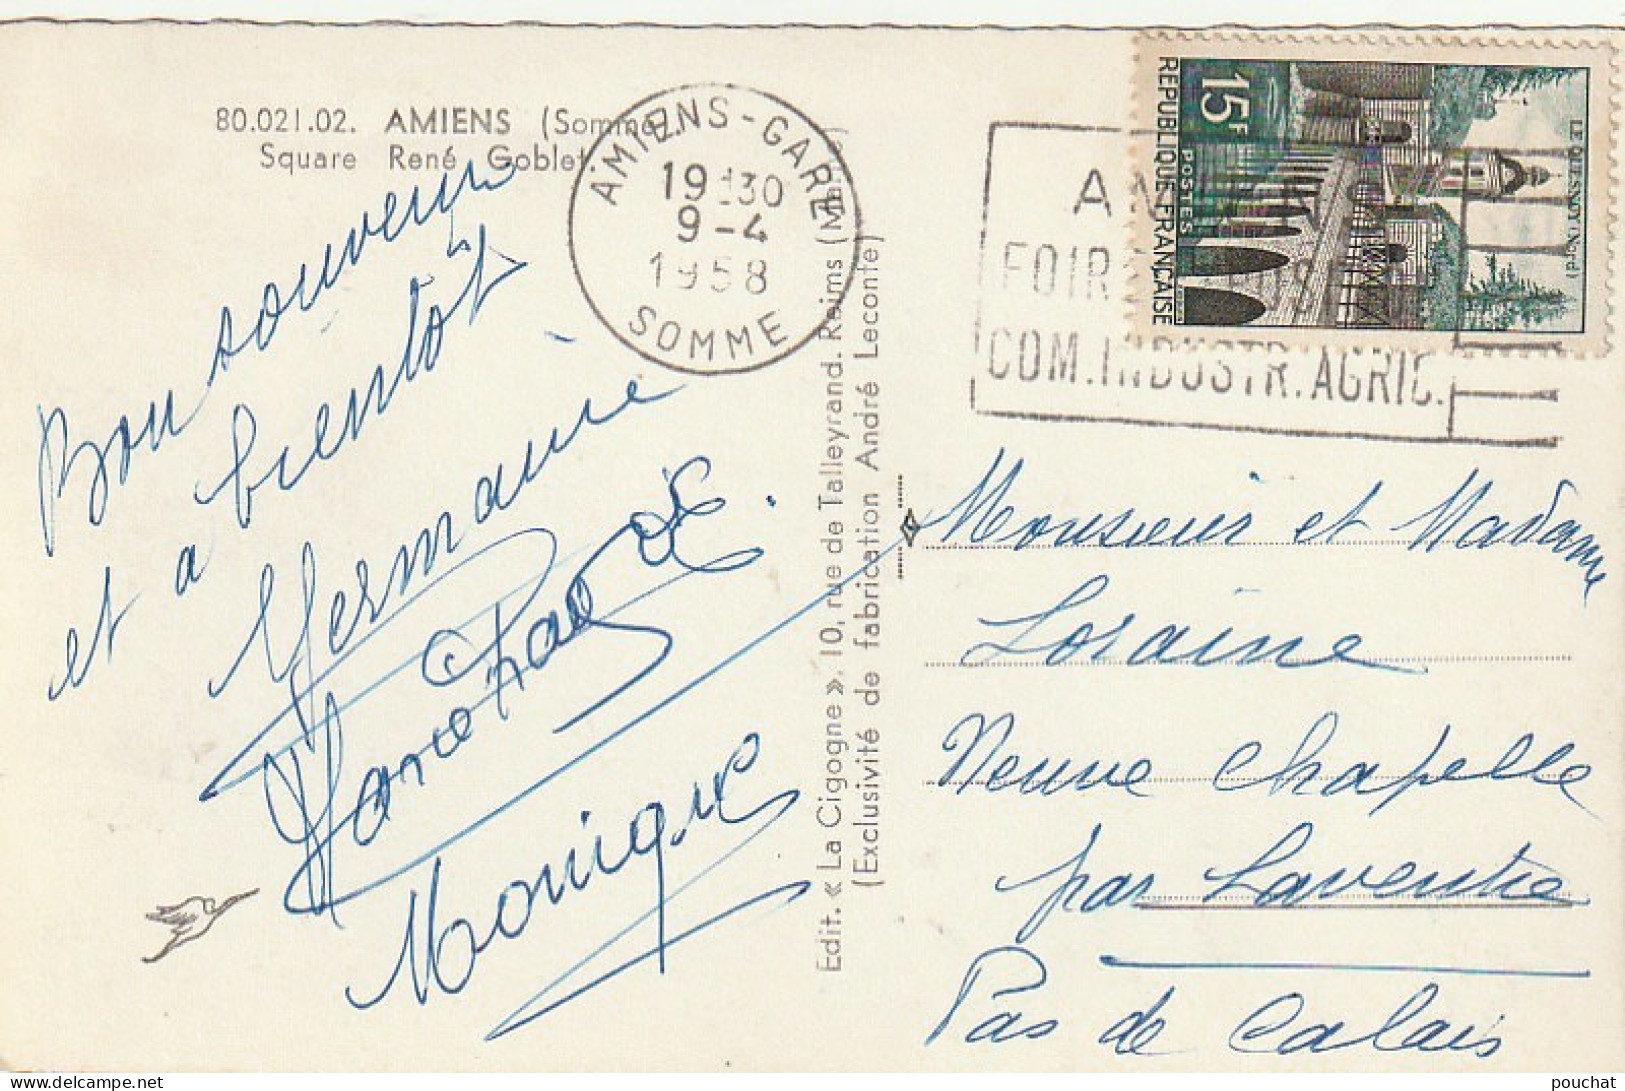 80.021.02. AMIENS (Somme).
Square René Goblet.
Bon souvenir
et a bientôt
Germaine
Monique
Edit. « La Cigogne », 10, rue de Talleyrand. Reims (Marne)
(Exclusivité de fabrication André Leconte)
AMIENS-GARE
19 30
9-4
1958
SOMME
FOIRE
COM.INDUSTR.AGRIC.
15F
REPUBLIQUE FRANÇAISE
POSTES
LE QUESNOY (Nord)
Monsieur et Madame
Loraine
Neuve Chapelle
par Laventie
Pas de Calais
delcampe.net
pouchat